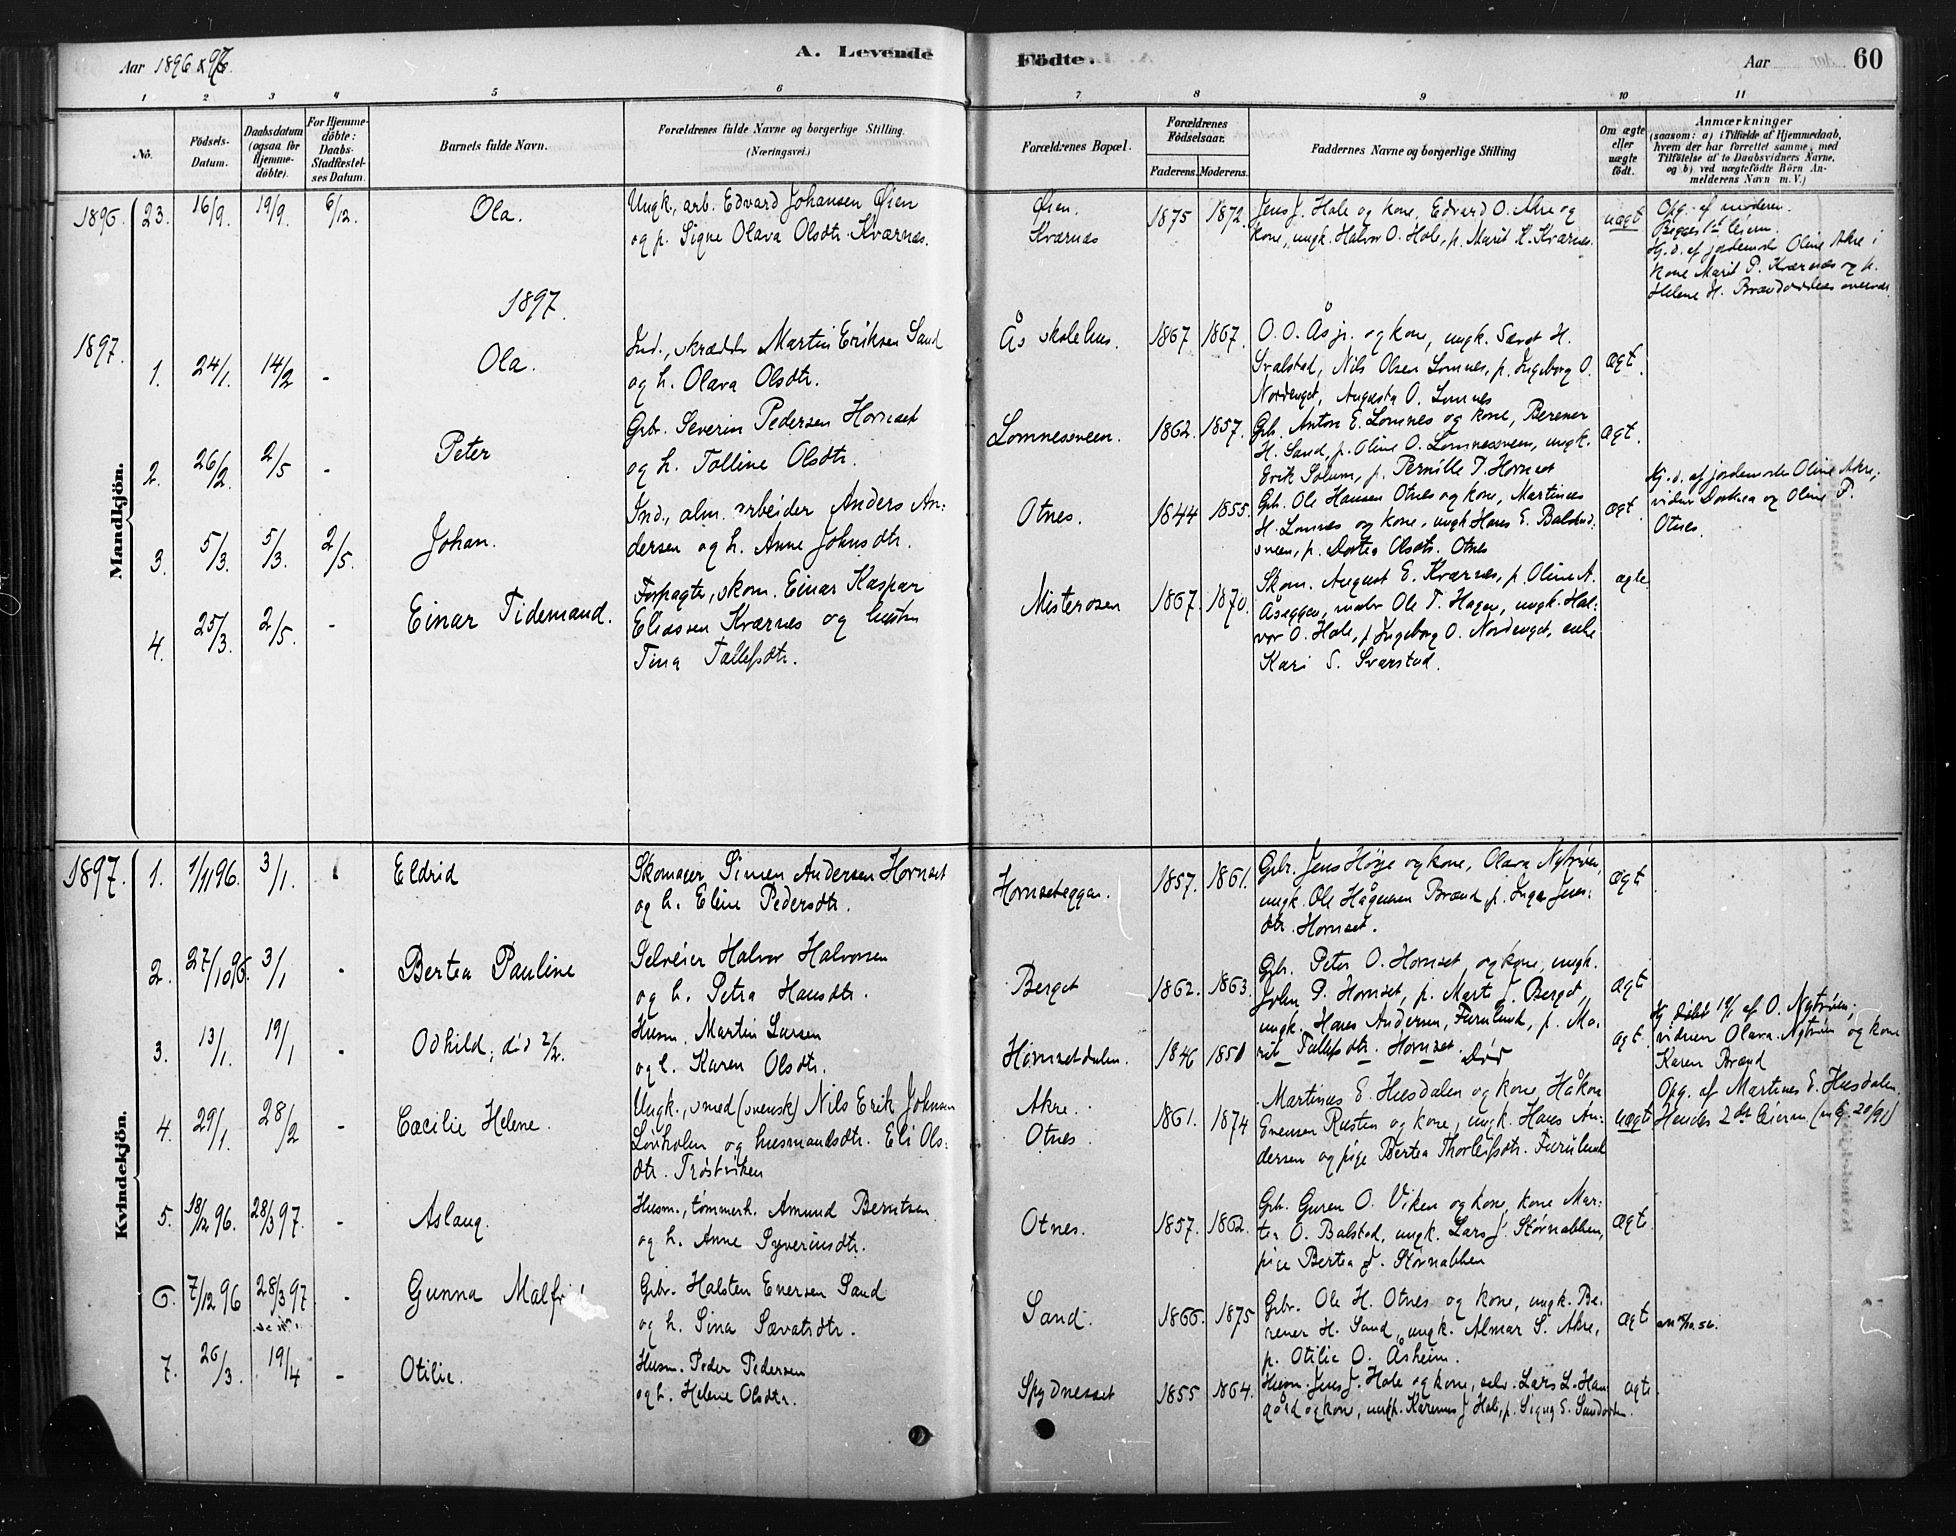 Aar 1896 & 97.
A. Levende
Födte.
Aar
60
1 2 3 4 5 6 7 8 9 10 11
No.
Födsels-
Datum.
Daabsdatum
(ogsaa for
Hjemme-
döbte).
For Hjemme-
döbte:
Daabs-
Stadfæstel-
ses Datum.
Barnets fulde Navn.
Forældrenes fulde Navne og borgerlige Stilling.
(Næringsvei.)
Forældrenes Bopæl.
Forældrenes
Födselsaar.
Faderens. Moderens.
Faddernes Navne og borgerlige Stilling
Om ægte
eller
uægte
födt.
Anmærkninger
(saasom: a) i Tilfælde af Hjemmedaab,
hvem der har forrettet samme, med
Tilföielse af to Daabsvidners Navne,
og b) ved uægtefödte Börn An-
melderens Navn m. V.)
Mandkjön.
1896. 23. 16/9. 19/9. 6/12. Ola.
Ungk., arb. Edvard Johansen Øien
og p. Signe Olava Olsdtr. Kværnes.
Øien.
Kværnes
1875 1872.
Jens J. Hole og kone, Edvard O. Akre og
kone, ungk. Halvor O. Hole, p. Marit H. Kværnes.
uægt
Opg. af moderen.
Begges 1ste leierm.
Hj. d. af jordemoder Oline Akre;
kone Marit P. Kværnes og p.
Helene H. overvær.
1897.
1897. 1. 24/1. 14/2 - Ola.
Ind., skrædder Martin Eriksen Sand
og h. Olava Olsdtr.
Ås skolehus. 1867 1867.
O. O. Ås jr. og kone, ungk. Sævat H.
Svalstad, Nils Olsen Lomnes, p. Ingeborg O.
Nordenget, Augusta O. Lomnes
ægt.
2. 26/2. 2/5 - Peter
Grbr. Severin Pedersen Hornset
og h. Tolline Olsdtr.
Lomnessveen. 1862. 1857.
Grb. Anton E. Lomnes og kone, Berener
H. Sand, p. Oline O. Lomnessveen, ungk.
Erik Solum, p. Pernille P. Hornset
ægt.
3. 5/3. 5/3. 2/5. Johan.
Ind., alm. arbeider Anders An-
dersen og h. Anne Johnsdtr.
Otnes. 1844 1855.
Grb. Ole Hansen Otnes og kone, Martines
H. Lomnes og kone, ungk Hans E. Balstad-
sveen, p. Dortea Olsdtr. Otnes
ægt.
Hj. d. af jordemoder Oline Akre;
vidner Dorthea og Oline P.
Otnes.
4. 25/3. 2/5. - Einar Tidemand.
Forpagter, skom. Einar Kaspar
Eliassen Kværnes og hustru
Tina Tollefsdtr.
Misterosen 1867. 1870.
Skom. August E. Kværnes, p. Oline A.
Åseggen, maler Ole T. Hagen, ungk. Hal-
vor O. Hole, p. Ingeborg O. Nordenget, enke
Kari S. Svarstad.
ægte
Kvindekjön.
1897. 1. 1/11 96. 3/1. Eldrid
Skomager Simen Andersen Hornset
og h. Eline Pedersdtr.
Hornseteggen. 1857. 1861.
Grbr. Jens Høye og kone, Olava Nytrøen,
ungk. Ole Håganæs Brænd, p. Inga Jens-
dtr. Hornset.
ægt
2. 27/10 96. 3/1 - Bertea Pauline
Selveier Halvor Halvorsen
og h. Petra Hansdtr.
Berget 1862. 1863.
Grb. Peter O. Hornset og kone, ungk.
John P. Hornset, p. Mart J. Berget,
ungk. Hans Andersen, Furulund, p. Ma-
rit Tollefsdtr. Hornset.
ægt
3. 13/1. 19/1 - Odhild; død 2/2.
Husm. Martin Larsen
og h. Karen Olsdtr.
Hornsetdalen. 1846 1851
Død
ægt.
Hj. døbt 19/1 af O. Nytrøen;
vidner Olava Nytrøen og kone
Karen Brænd
4. 29/1. 28/2 - Cæcilie Helene.
Ungk., smed (svensk) Nils Erik Johnsen
Lovholen og husmandsdtr. Eli Ols-
dtr. Trøstviken
Akre.
Otnes. 1861. 1874
Martines E. Husdalen og kone, Håkon
Evensen Rusten og kone, ungk. Hans An-
dersen og pige Bertea Thorleifsdtr. Furulund
uægte
Opg. af Martines E. Husdalen
Hendes 2det leierm. (20/91)
5. 18/12 96. 28/3 97. - Aslaug.
Husm., tømmerh. Amund Berntsen
og h. Anne Syverinsdtr.
Otnes. 1857. 1862.
Grb. Guren O. Viken og kone, kone Mar-
tea O. Balstad, ungk. Lars J. Stornabben,
pige Bertea J. Stornabben
ægte
6. 7/12 96 28/3 97 - Gunna Malfr
Grbr. Halsten Enersen Sand
og h. Sina Sævatsdtr.
Sand. 1866. 1875
Grbr. Ole H. Otnes og kone, ungk. Be-
rener H. Sand, ungk. Almar S. Akre,
p. Otilie O. Åsheim.
ægt
7. 26/3. 19/4 - Otilie.
Husm. Peder Pedersen
og h. Helene Olsdtr.
Spydnesset 1855 1864.
Husm. Jens J. Hole og kone, selv. Lars L. Han-
gård og kone, ungk. Karenus J. Hole, p. Signe S.
ægte